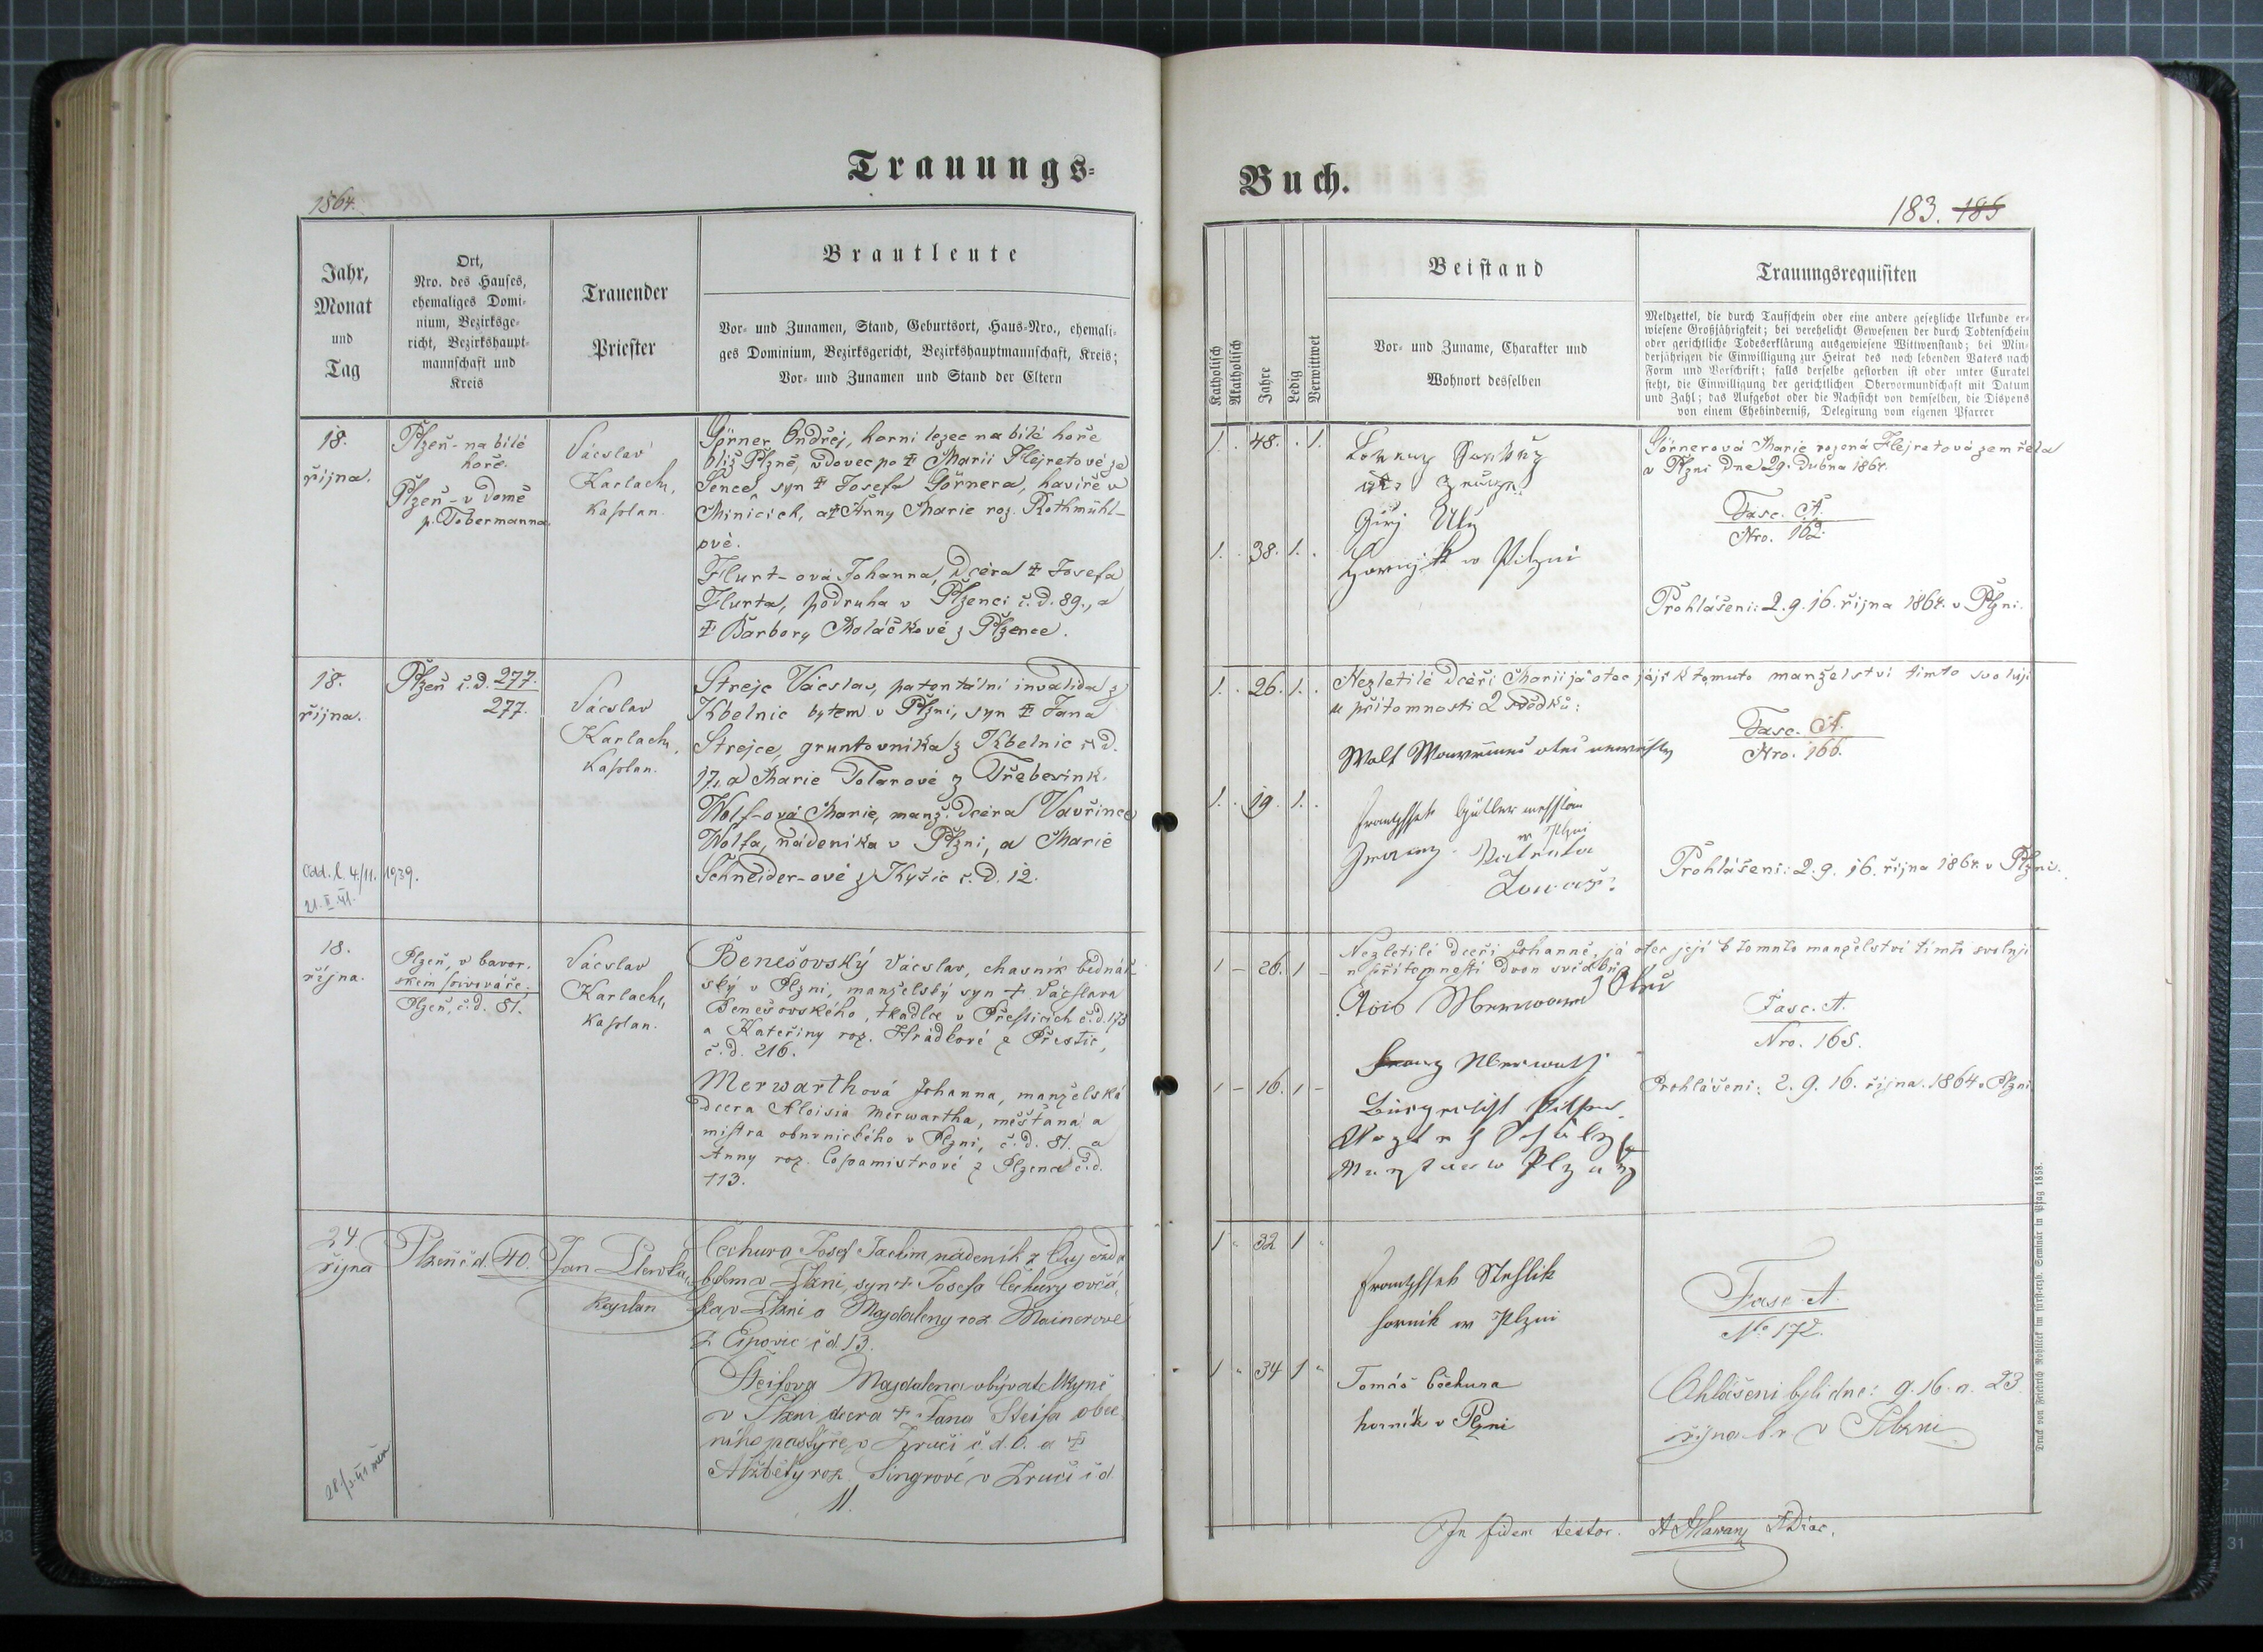 Trauungs-
1864.
Jahr,
Monat
und
Tag
Ort,
Nro. des Hauses,
ehemaliges Domi-
nium, Bezirksge-
richt, Bezirkshaupt-
mannschaft und
Kreis
Trauender
Priester
Brautleute
Vor- und Zunamen, Stand, Geburtsort, Haus-Nro., ehemali-
ges Dominium, Bezirksgericht, Bezirkshauptmannschaft, Kreis;
Vor- und Zunamen und Stand der Eltern
18.
října.
Plzeň - na bílé
hoře.
Plzeň - v domě
p. Tobermanna.
Vácslav
Karlach,
kaplan.
Görner Ondřej, horní lezec na bílé hoře
blíž Plzně, vdovec po ☩ Marii Flejretové ze
Sence, syn ☩ Josefa Görnera, havíře v
Minicích, a ☩ Anny Marie roz. Rothmühl-
ové.
Flurt-ová Johanna, dcera ☩ Josefa
Flurta, podruha v Plzenci č.d. 89., a
☩ Barbory Koláčkové z Plzence.
18.
října.
Plzeň č.d. 277.
277.
Vácslav
Karlach,
kaplan.
Strejc Vácslav, patentální invalida z
Kbelnic bytem v Plzni, syn ☩ Jana
Strejce, gruntovníka z Kbelnic č.d.
17, a Marie Tolarové z Třebevink.
Wolf-ová Marie, manž. dcera Vavřince
Wolfa, nádeníka v Plzni, a Marie
Schneider-ové z Kyšic č.d. 12.
Odd. l. 4/11. 1939.
21. II. 41.
18.
října.
Plzeň, v bavor.
ském pivováře.
Plzeň, č.d. 81.
Vácslav
Karlach,
kaplan.
Benešovský Vácslav, chasník bednář-
ský v Plzni, manželský syn + Vácslava
Benešovského, tkadlce v Přesticích č.d. 173
a Kateřiny roz. Hrádkové z Přestic,
č.d. 216.
Merwarthová Johanna, manželská
dcera Aloisia Merwartha, měšťana a
mistra obuvnického v Plzni, č.d. 81. a
Anny roz. z Plzence č.d.
113.
24
října
Plzeň č d. 40.
Jan
kaplan
Čechura Josef Jachim nádeník z
bytem v Plzni, syn + Josefa Čechury ovčá-
ka v Plzni a Magdaleny roz Mainerové
z Ejpovic č d. 13.
Šteifova Magdalena obyvatelkyně
v Plzni dcera + Jana Šteifa obec
ního pastýře v Zruči č.d. 0. a ☩
Alžběty roz. Singrové v Zruči č d
11.
Buch.
183. 185
Katholisch
Akatholisch
Jahre
Ledig
Verwittwet
Beistand
Vor- und Zuname, Charakter und
Wohnort desselben
Trauungsrequisiten
Meldzettel, die durch Taufschein oder eine andere gesetzliche Urkunde er-
wiesene Großjährigkeit; bei verehelicht Gewesenen der durch Todtenschein
oder gerichtliche Todeserklärung ausgewiesene Wittwenstand; bei Min-
derjährigen die Einwilligung zur Heirat des noch lebenden Vaters nach
Form und Vorschrift; falls derselbe gestorben ist oder unter Curatel
steht, die Einwilligung der gerichtlichen Obervormundschaft mit Datum
und Zahl; das Aufgebot oder die Nachsicht von demselben, die Dispens
von einem Ehehinderniß, Delegirung vom eigenen Pfarrer
1. . 48. . 1.
Lorenz
Girj Ulč
1. . 38. 1. .
Hornjk w Pilzni
Görnerová Marie rozená Flejretová zemřela
v Plzni dne 29. dubna 1864.
Fasc. A.
Nro. 162.
Prohlášeni: 2. 9. 16. října 1864. v Plzni.
1. . 26. 1. .
Nezletilé dceři Marii já otec její k tomuto manželství tímto svoluji
u přítomnosti 2 svědků:
Wolf Wawřinec otec newěsty
1. . 19. 1. .
Frantisstek Güller messťan
w Plzni
Fasc. A.
Nro. 166.
Prohlášeni: 2. 9. 16. října 1864. v Plzni.
1 - 26. 1 -
Nezletilé dceři Johanně, já otec její k tomuto manželství tímto svoluji
u přítomnosti dvou svědků
Alois Merwart Otec
Franz Merwarth
1 - 16. 1 -
Bürger
Fasc. A.
Nro. 165.
Prohlášeni: 2. 9. 16. října. 1864 v Plzni
1 " 32 1 "
Frantisstek Stehlik
hornik w Plzni
1 " 34 1 "
Tomáš Čechura
horník v Plzni
Fasc A
No 172.
Ohlášeni byli dne: 9. 16. a. 23.
října t. r. v Plzni
In fidem testor.
Druck von Friedrich Rohliček im fürsterzb. Seminär in Prag 1858.